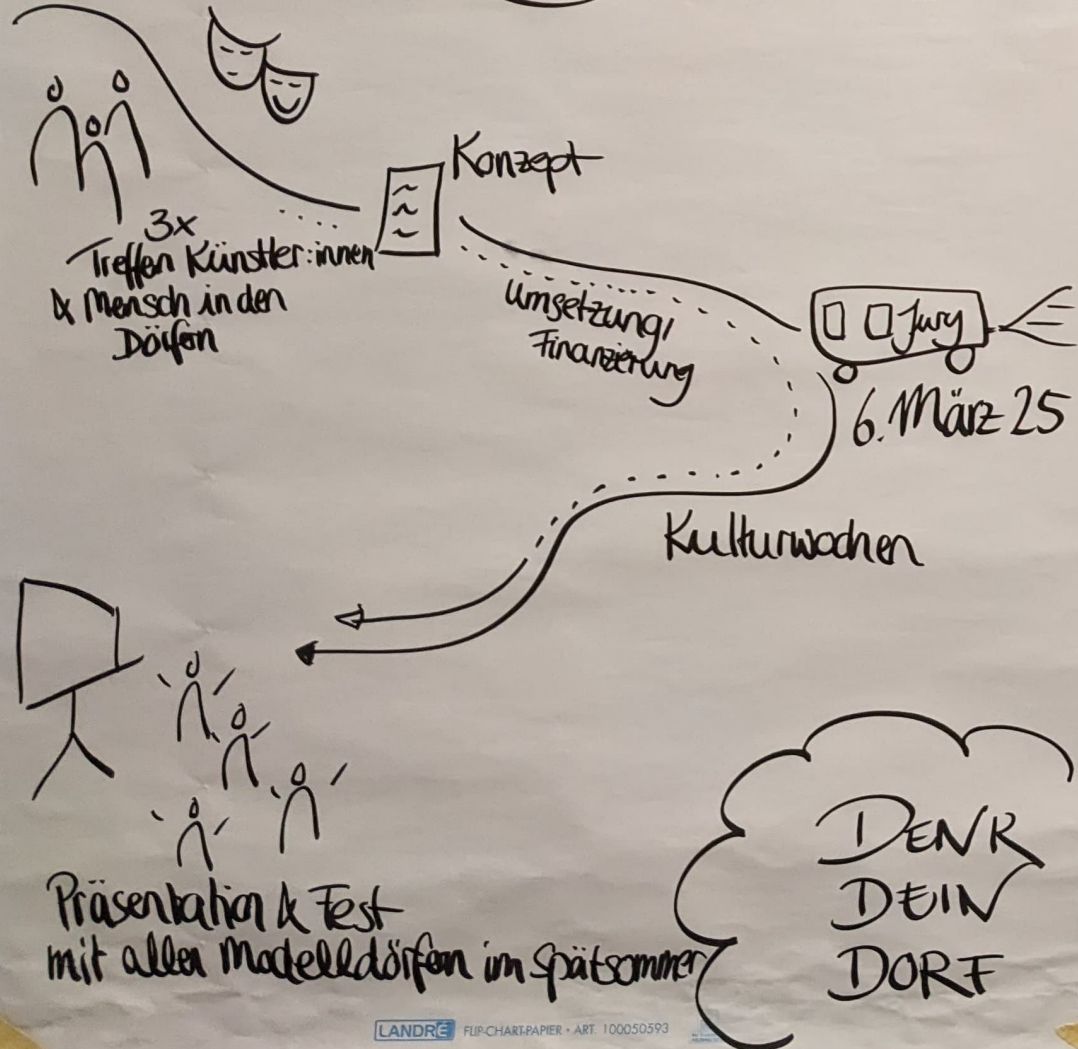 Konzept
3x
Treffen Künstler:innen
& Mensch in den
Dörfern
Umsetzung,
Finanzierung
Jury
6. März 25
Kulturwochen
Präsentation & Fest
mit allen Modelldörfern im Spätsommer
DENK
DEIN
DORF
LANDRÉ FLIP-CHART-PAPIER • ART. 100050593